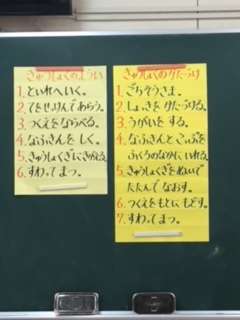 きゅうしょくのようい
1.といれへいく。
2.てをせっけんであらう。
3.つくえをならべる。
4.なふきんをしく。
5.きゅうしょくぎにきがえる。
6.すわってまつ。
きゅうしょくのかたづけ
1.ごちそうさま。
2.しょっきをかたづける。
3.うがいをする。
4.なふきんとこっぷを
ふくろのなかにいれる。
5.きゅうしょくぎをぬいで
たたんでなおす。
6.つくえをもとにもどす。
7.すわってまつ。